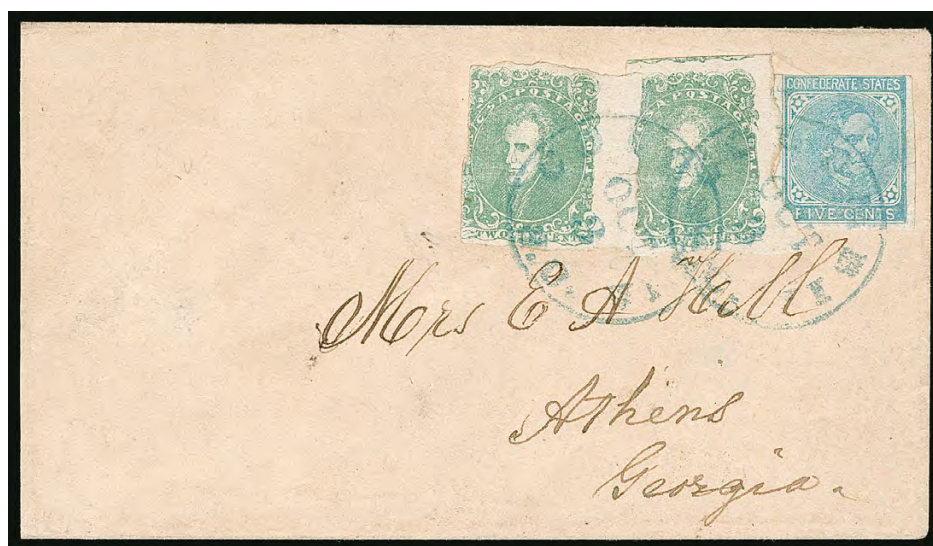 C.S.A. POSTAGE
TWO CENTS
C.S.A. POSTAGE
TWO CENTS
CONFEDERATE STATES
FIVE CENTS
OCT
OCT
Mrs E A Hill
Athens
Georgia.